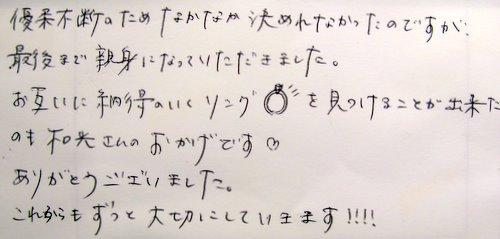 優柔不断のためなかなか決めれなかったのですが、
最後まで親身になっていただきました。
お互いに納得のいくリングを見つけることが出来た
のも和光さんのおかげです♡
ありがとうございました。
これからもずっと大切にしていきます!!!!